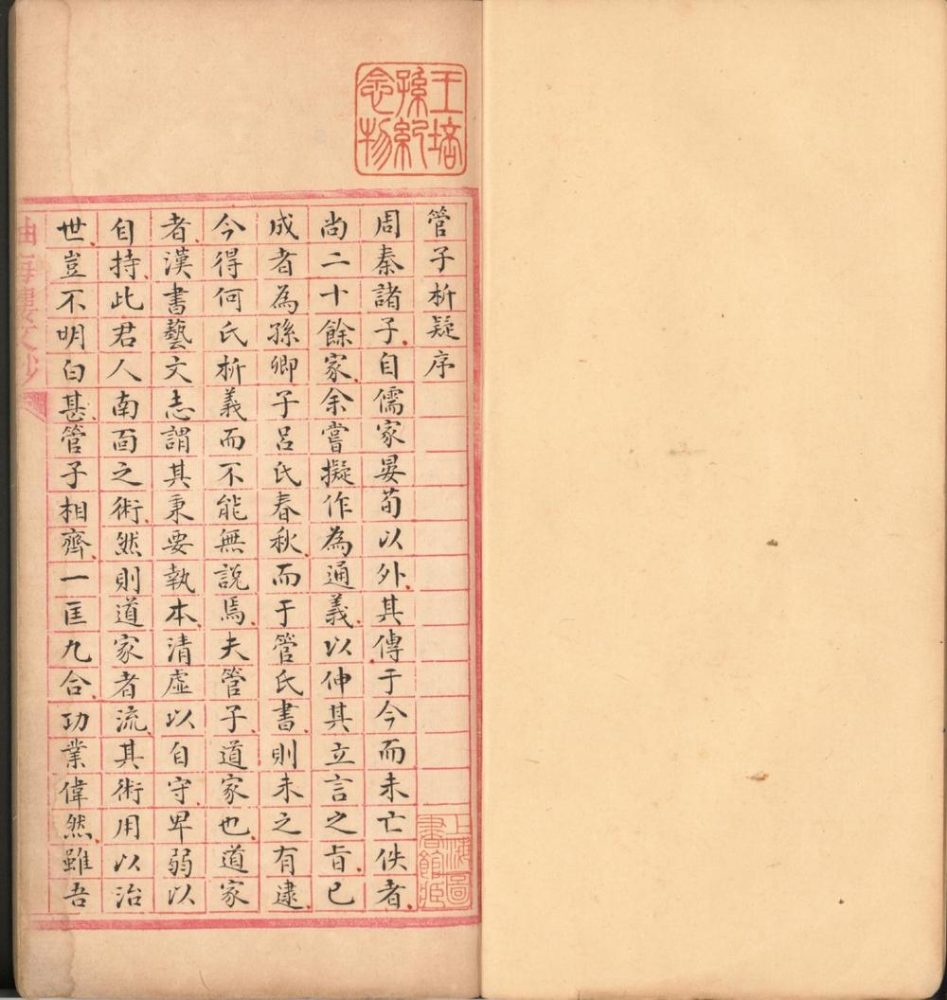 王培孫紀念物
管子析疑序
周秦諸子自儒家晏荀以外其傳于今而未亡佚者
尚二十餘家余嘗擬作為通義以伸其立言之旨已
成者為孫卿子呂氏春秋而于管氏書則未之有逮
今得何氏析義而不能無説焉夫管子道家也道家
者漢書藝文志謂其秉要執本清虛以自守卑弱以
自持此君人南面之術然則道家者流其術用以治
世豈不明白甚管子相齊一匡九合功業偉然雖吾
上海圖書館藏